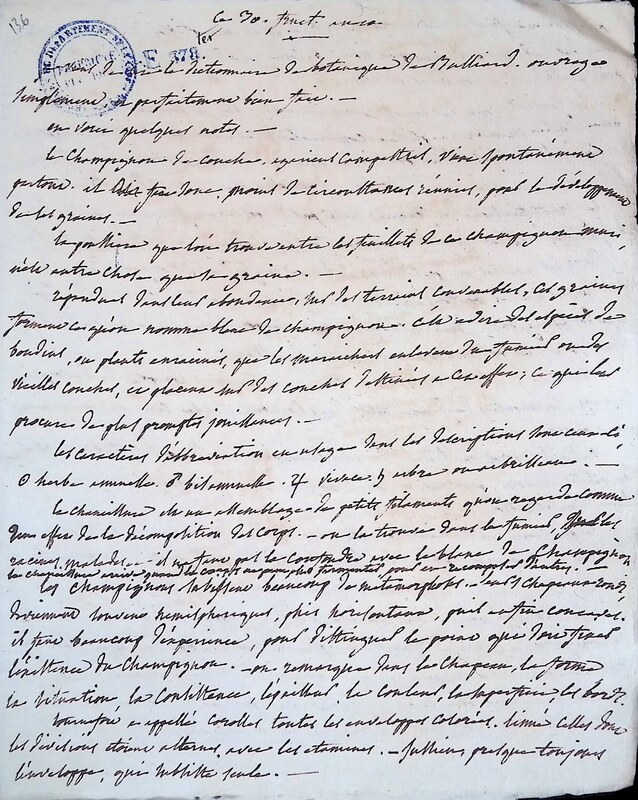 136
ce 30. fruct. an 10
E 378
le dictionnaire de botanique de Bulliard. ouvrage
simplement et parfaitement bien fait. —
en voici quelques notes. —
le Champignon de couche, agaricus campestris, vient spontanément
partout. il faut donc moins de circonstances réunies, pour le développement
de ses graines. —
la poussière que l'on trouve entre les feuillets de ce champignon muri,
n'est autre chose que sa graine. —
répandues dans leur abondance, sur des terrains convenables, ces graines
forment ce qu'on nomme blanc de champignon. c'est à dire des espèces de
boudins, ou plants enracinés, que les maraichers enlevent du fumier ou des
vieilles couches, et placent sur des couches destinées à cet effet; ce qui leur
procure de plus promptes jouissances. —
les caractères d'abbréviation en usage dans les descriptions sont ceux-ci,
☉ herbe annuelle. ♂ bisannuelle. ♃ vivace. ♄ arbre ou arbrisseau. —
la chancissure est un assemblage de petits filaments qu'on regarde comme
un effet de la décomposition des corps. — on la trouve dans le fumier, les
racines malades. — il ne faut pas la confondre avec le blanc de champignon
la chancissure arrive quand les corps ne peuvent plus fermenter pour en recomposer d'autres. —
les champignons subissent beaucoup de métamorphoses. — leurs chapeaux
deviennent souvent hemispheriques, puis horisontaux, puis enfin concaves.
il faut beaucoup d'experience, pour distinguer le point que doit fixer
l'existence du Champignon. — on remarque dans le chapeau, la forme
la situation, la consistance, l'épaisseur, la couleur, la superficie, les bords.
tournefort a appellé corolles toutes les enveloppes colorées. linné celles dont
les divisions étoient alternes avec les étamines. — jussieu presque toujours
l'enveloppe, qui subsiste seule. —